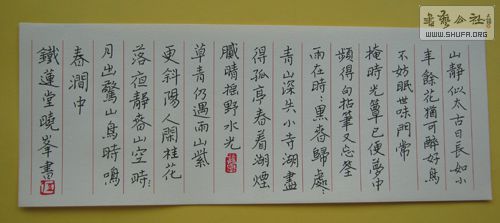 山靜似太古日長如小
年餘花猶可醉好鳥
不妨眠世味門常
掩時光簟已便夢中
頻得句拈筆又忘筌
雨在時〻黑春歸處〻
青山深失小寺湖盡
得孤亭春着湖煙
膩晴搖野水光
草青仍過雨山紫
更斜陽人閑桂花
落夜靜春山空
月出驚山鳥時鳴
春澗中
鐵蓮堂曉峯書
WWW.SHUFA.ORG